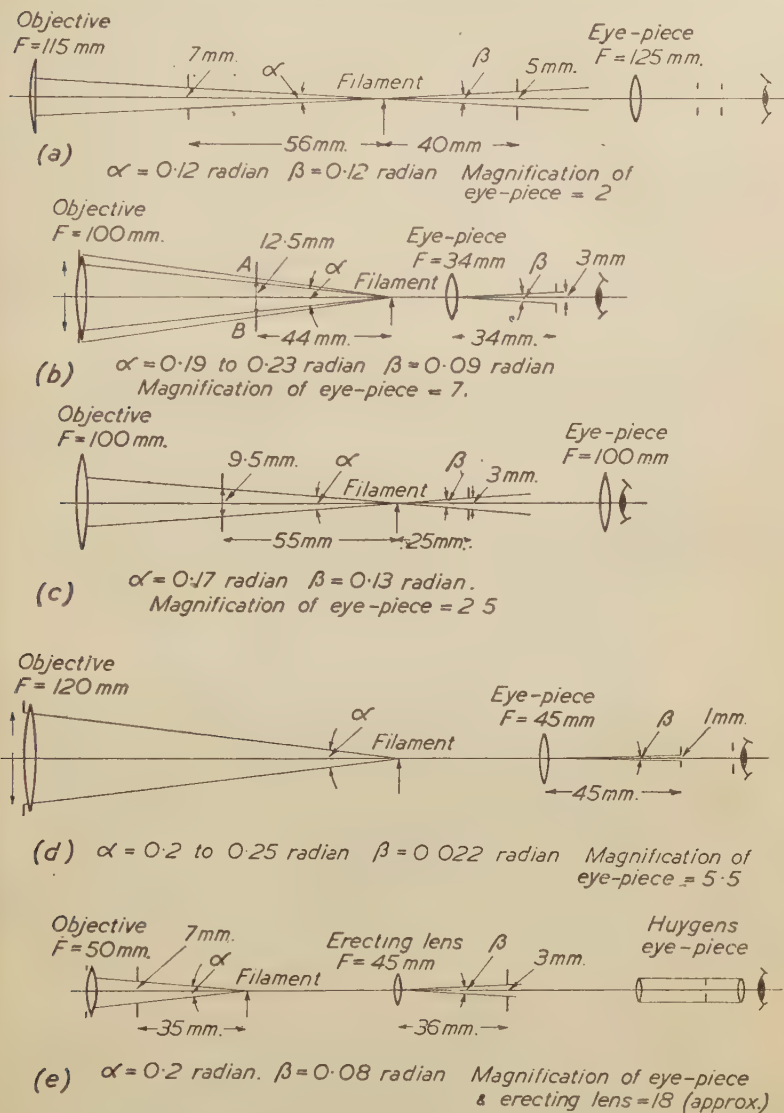 Objective
F=115 mm
7mm.
α
Filament
β
5mm.
Eye-piece
F=125mm.
56mm.
40mm
(a)
α = 0·12 radian β = 0·12 radian Magnification of
eye-piece = 2
Objective
F=100mm.
A
12.5mm
α
Filament
Eye-piece
F=34mm
β
3mm
B
44mm.
34mm.
(b)
α = 0·19 to 0·23 radian β = 0·09 radian
Magnification of eye-piece = 7.
Objective
F=100mm.
9.5mm.
α
Filament
β
3mm.
Eye-piece
F=100mm
55mm
25mm.
(c)
α = 0·17 radian β = 0·13 radian.
Magnification of eye-piece = 2 5
Objective
F=120mm
α
Filament
Eye-piece
F=45mm
β
1mm.
45mm.
(d) α = 0·2 to 0·25 radian β = 0 022 radian Magnification of
eye-piece = 5·5
Objective
F=50mm.
7mm.
α
Filament
Erecting lens
F=45mm
β
3mm.
Huygens
eye-piece
35mm.
36mm.
(e) α = 0·2 radian. β = 0·08 radian Magnification of eye-piece
& erecting lens = 18 (approx.)